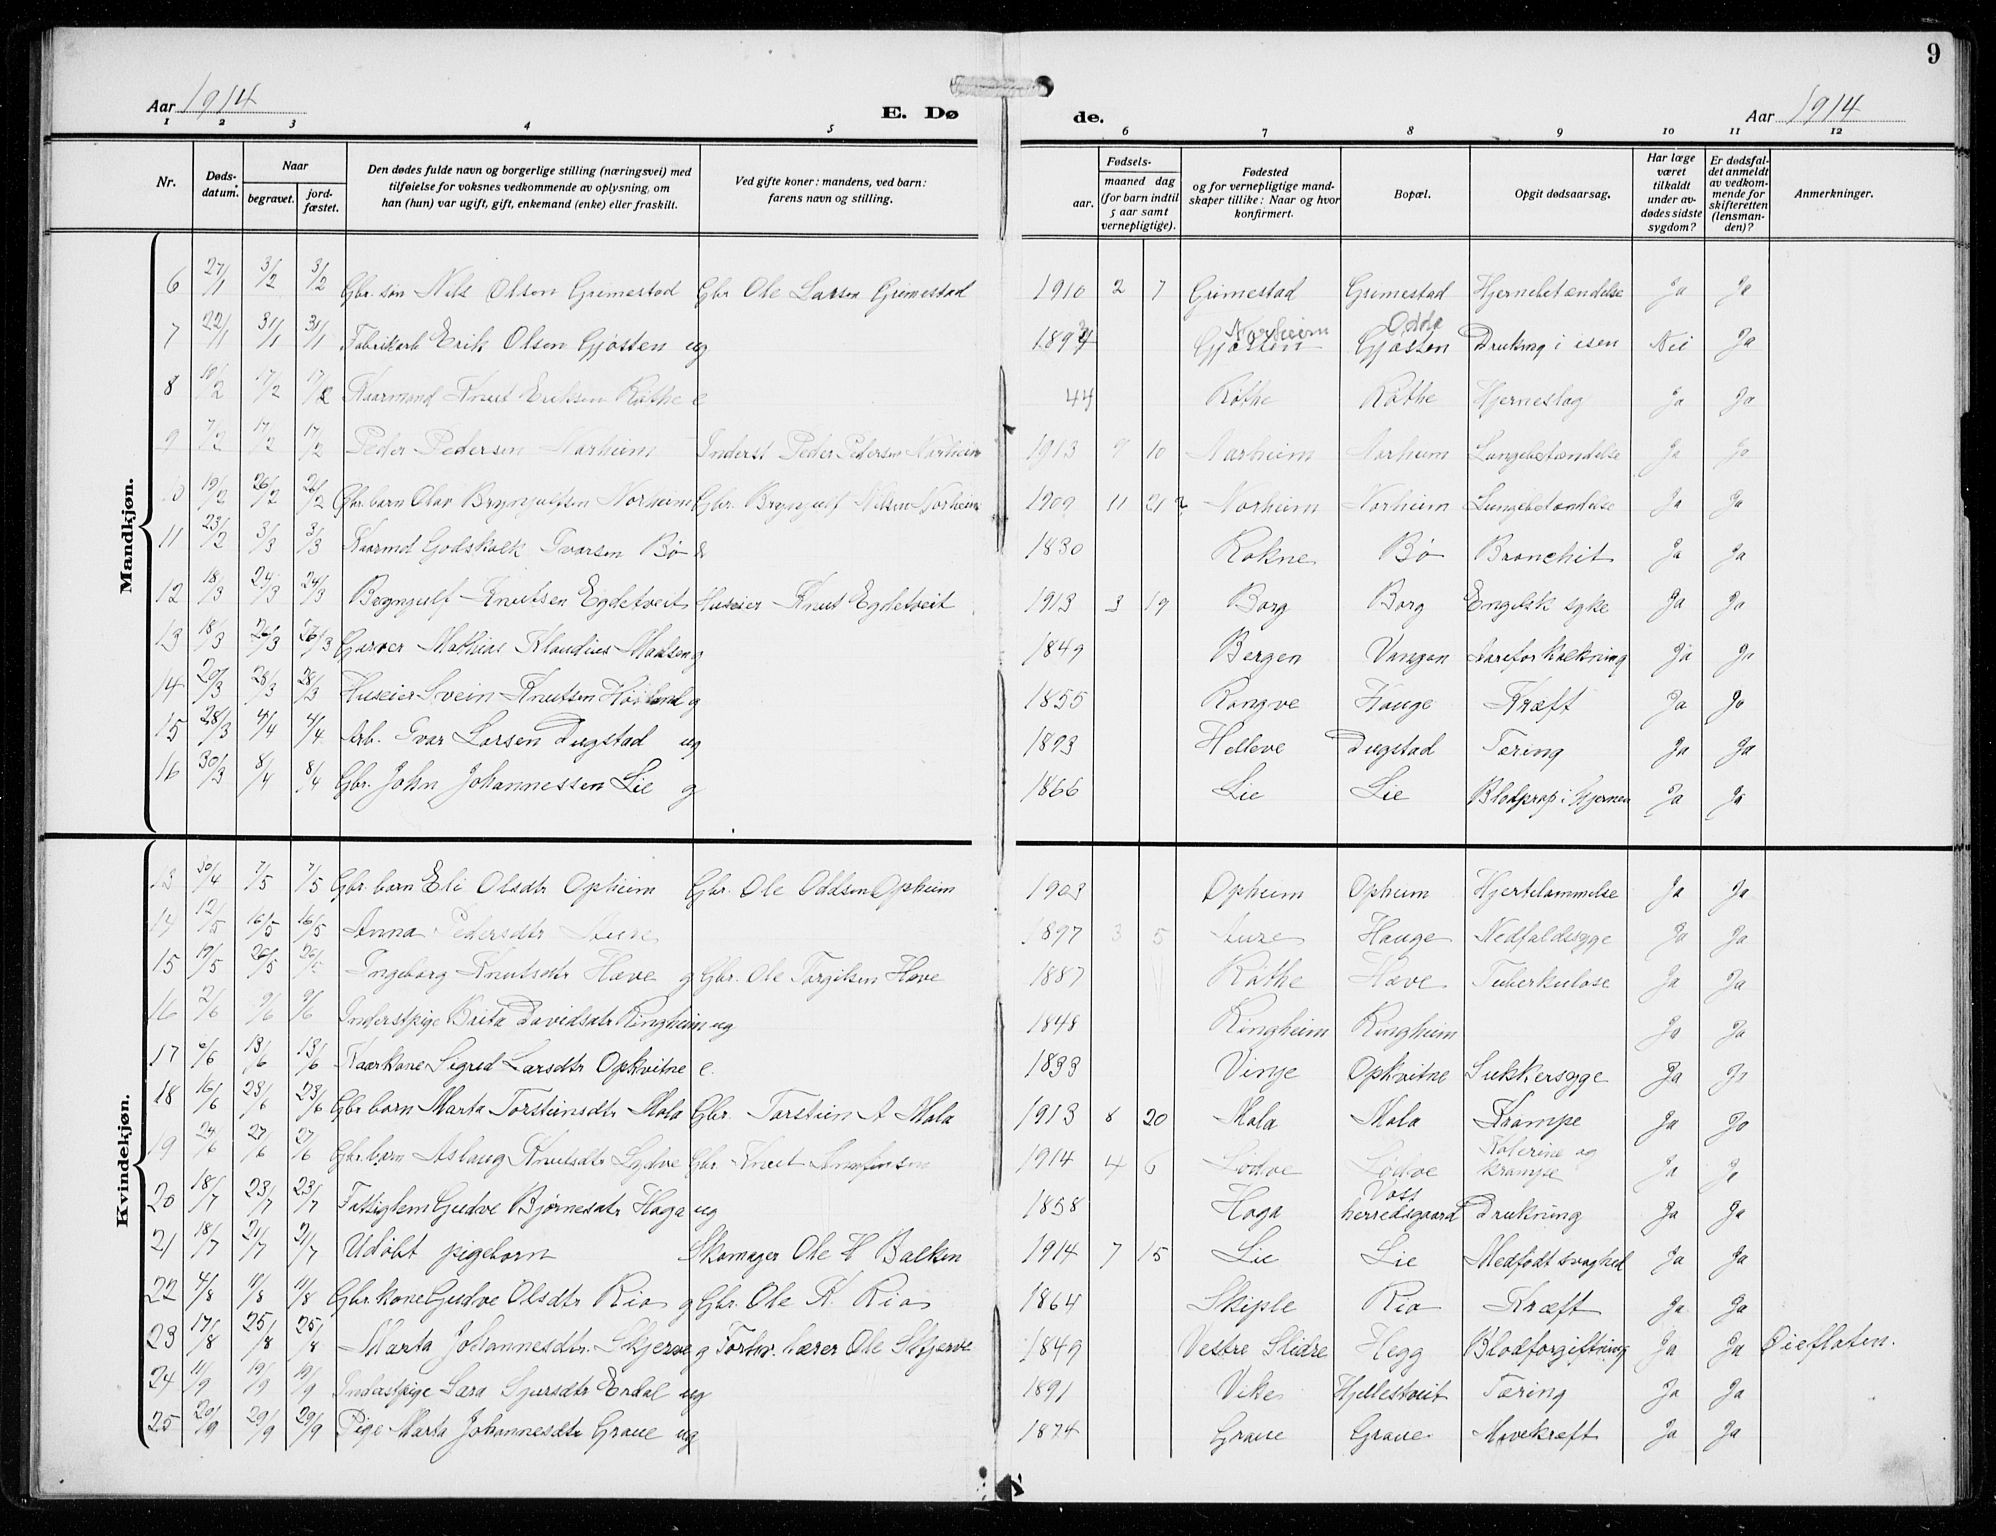 9
Aar 1914
E. Dø de.
Aar 1914
1 2 3 4 5 6 7 8 9 10 11 12
Nr.
Døds-datum.
Naar
begravet.
jord-fæstet.
Den dødes fulde navn og borgerlige stilling (næringsvei) med tilføielse for voksnes vedkommende av oplysning, om han (hun) var ugift, gift, enkemand (enke) eller fraskilt.
Ved gifte koner: mandens, ved barn: farens navn og stilling.
Fødsels-
aar.
maaned dag
(for barn indtil 5 aar samt vernepligtige).
Fødested og for vernepligtige mand-skaper tillike: Naar og hvor konfirmert.
Bopæl.
Opgit dødsaarsag.
Har læge været tilkaldt under av-dødes sidste sygdom?
Er dødsfal-det anmeldt av vedkom-mende for skifteretten (lensman-den)?
Anmerkninger.
Mandkjøn.
6 27/1 3/2 3/2 Gbr. søn Nils Olsen Grimestad Gbr Ole Larsen Grimestad 1910 2 7 Grimestad Grimestad Hjernebetændelse Ja Ja
7 22/1 31/1 31/1 Fabrikarb Erik Olsen Gjøsten ug Gjøsten Norheim Gjøsten Odda Drukning i isen Nei Ja
8 10/2 17/2 17/2 Kaarmand Knut Eriksen Røthe e 44 Røthe Røthe Hjerneslag Ja Ja
9 7/2 17/2 17/2 Peder Pedersen Norheim Inderst Peder Pedersen Norheim 1913 9 10 Norheim Norheim Lungebetændelse Ja Ja
10 19/2 26/2 26/2 Gbr. barn Olav Bryngulfsen Norheim Gbr. Bryngulf Nilsen Norheim 1909 11 21 Norheim Norheim Lungebetændelse Ja Ja
11 23/2 3/3 3/3 Kaarmd Godskalk Ivarsen Bø 1830 Rokne Bø Bronchit Ja Ja
12 18/3 24/3 24/3 Bryngulf Knutsen Egdetveit Huseier Knut Egdetveit 1913 3 19 Borg Borg Engelsk syke Ja Ja
13 18/3 26/3 26/3 Garver Mathias Klaudius Madsen g 1849 Bergen Vangen Aareforkalkning Ja Ja
14 20/3 28/3 28/3 Huseier Svein Knutsen Høiland g 1855 Rongve Hauge Kræft Ja Ja
15 28/3 4/4 4/4 Arb. Ivar Larsen Dugstad ug 1893 Helleve Dugstad Tæring Ja Ja
16 30/3 8/4 8/4 Gbr. John Johannessen Lie g 1866 Lie Lie Blodprop i Hjernen Ja Ja
Kvindekjøn.
13 30/4 7/5 7/5 Gbr. barn Eli Olsdtr Opheim Gbr. Ole Oddsen Opheim 1903 Opheim Opheim Hjertelammelse Ja Ja
14 12/5 16/5 16/5 Anna Pedersdtr Aure 1897 3 5 Aure Hauge Nedfaldesyge Ja Ja
15 19/5 26/5 26/5 Ingeborg Knutsdtr Hæve g Gbr. Ole Torgilsen Hæve 1887 Røthe Hæve Tuberkulose Ja Ja
16 2/6 9/6 9/6 Inderstpige Brita Davidsdtr Ringheim ug 1848 Ringheim Ringheim Ja Ja
17 6/6 13/6 13/6 Kaarkone Sigrid Larsdtr Opkvitne e. 1833 Vinje Opkvitne Sukkersyge Ja Ja
18 16/6 23/6 23/6 Gbr barn Marta Torsteinsdtr Mola Gbr. Torstein A Mola 1913 8 20 Mola Mola Krampe Ja Ja
19 24/6 27/6 27/6 Gbr. barn Aslaug Knutsdtr Lødve Gbr. Knut 1914 4 6 Lødve Lødve Kolerine og krampe Ja Ja
20 18/7 23/7 23/7 Fattiglem Gudve Bjørnesdtr Haga ug 1858 Haga Voss herredsgaard Drukning Ja Ja
21 18/7 21/7 21/7 Udøbt pigebarn Skomager Ole H Balken 1914 7 15 Lie Lie Medfødt svaghed Ja Ja
22 4/8 11/8 11/8 Gbr. kone Gudve Olsdtr Rio g Gbr. Ole K. Rio 1864 Skiple Rio Kræft Ja Ja
23 17/8 25/8 25/8 Marta Johannesdtr. Skjerve g Forhv. lærer Ole Skjerve 1849 Vestre Slidre Hegg Blodforgiftning Ja Ja Øieflaten.
24 11/9 19/9 19/9 Inderstpige Sara Sjursdtr Erdal ug 1891 Vike Hjellestveit Tæring Ja Ja
25 20/9 29/9 29/9 Pige Marta Johannesdtr Graue ug 1874 Graue Graue Mavekræft Ja Ja